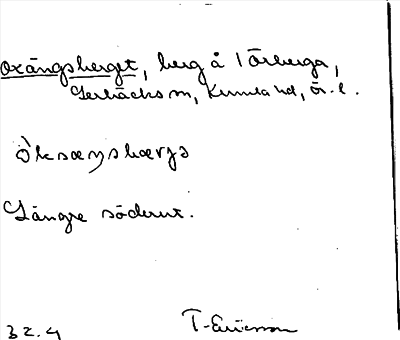 Oxängsberget, berg å 1 Örberga,
Lerbäcks sn, Kumla hd, Ör. l.
Òksæŋsbærjə
Längre söderut.
32.4 T. Ericsson